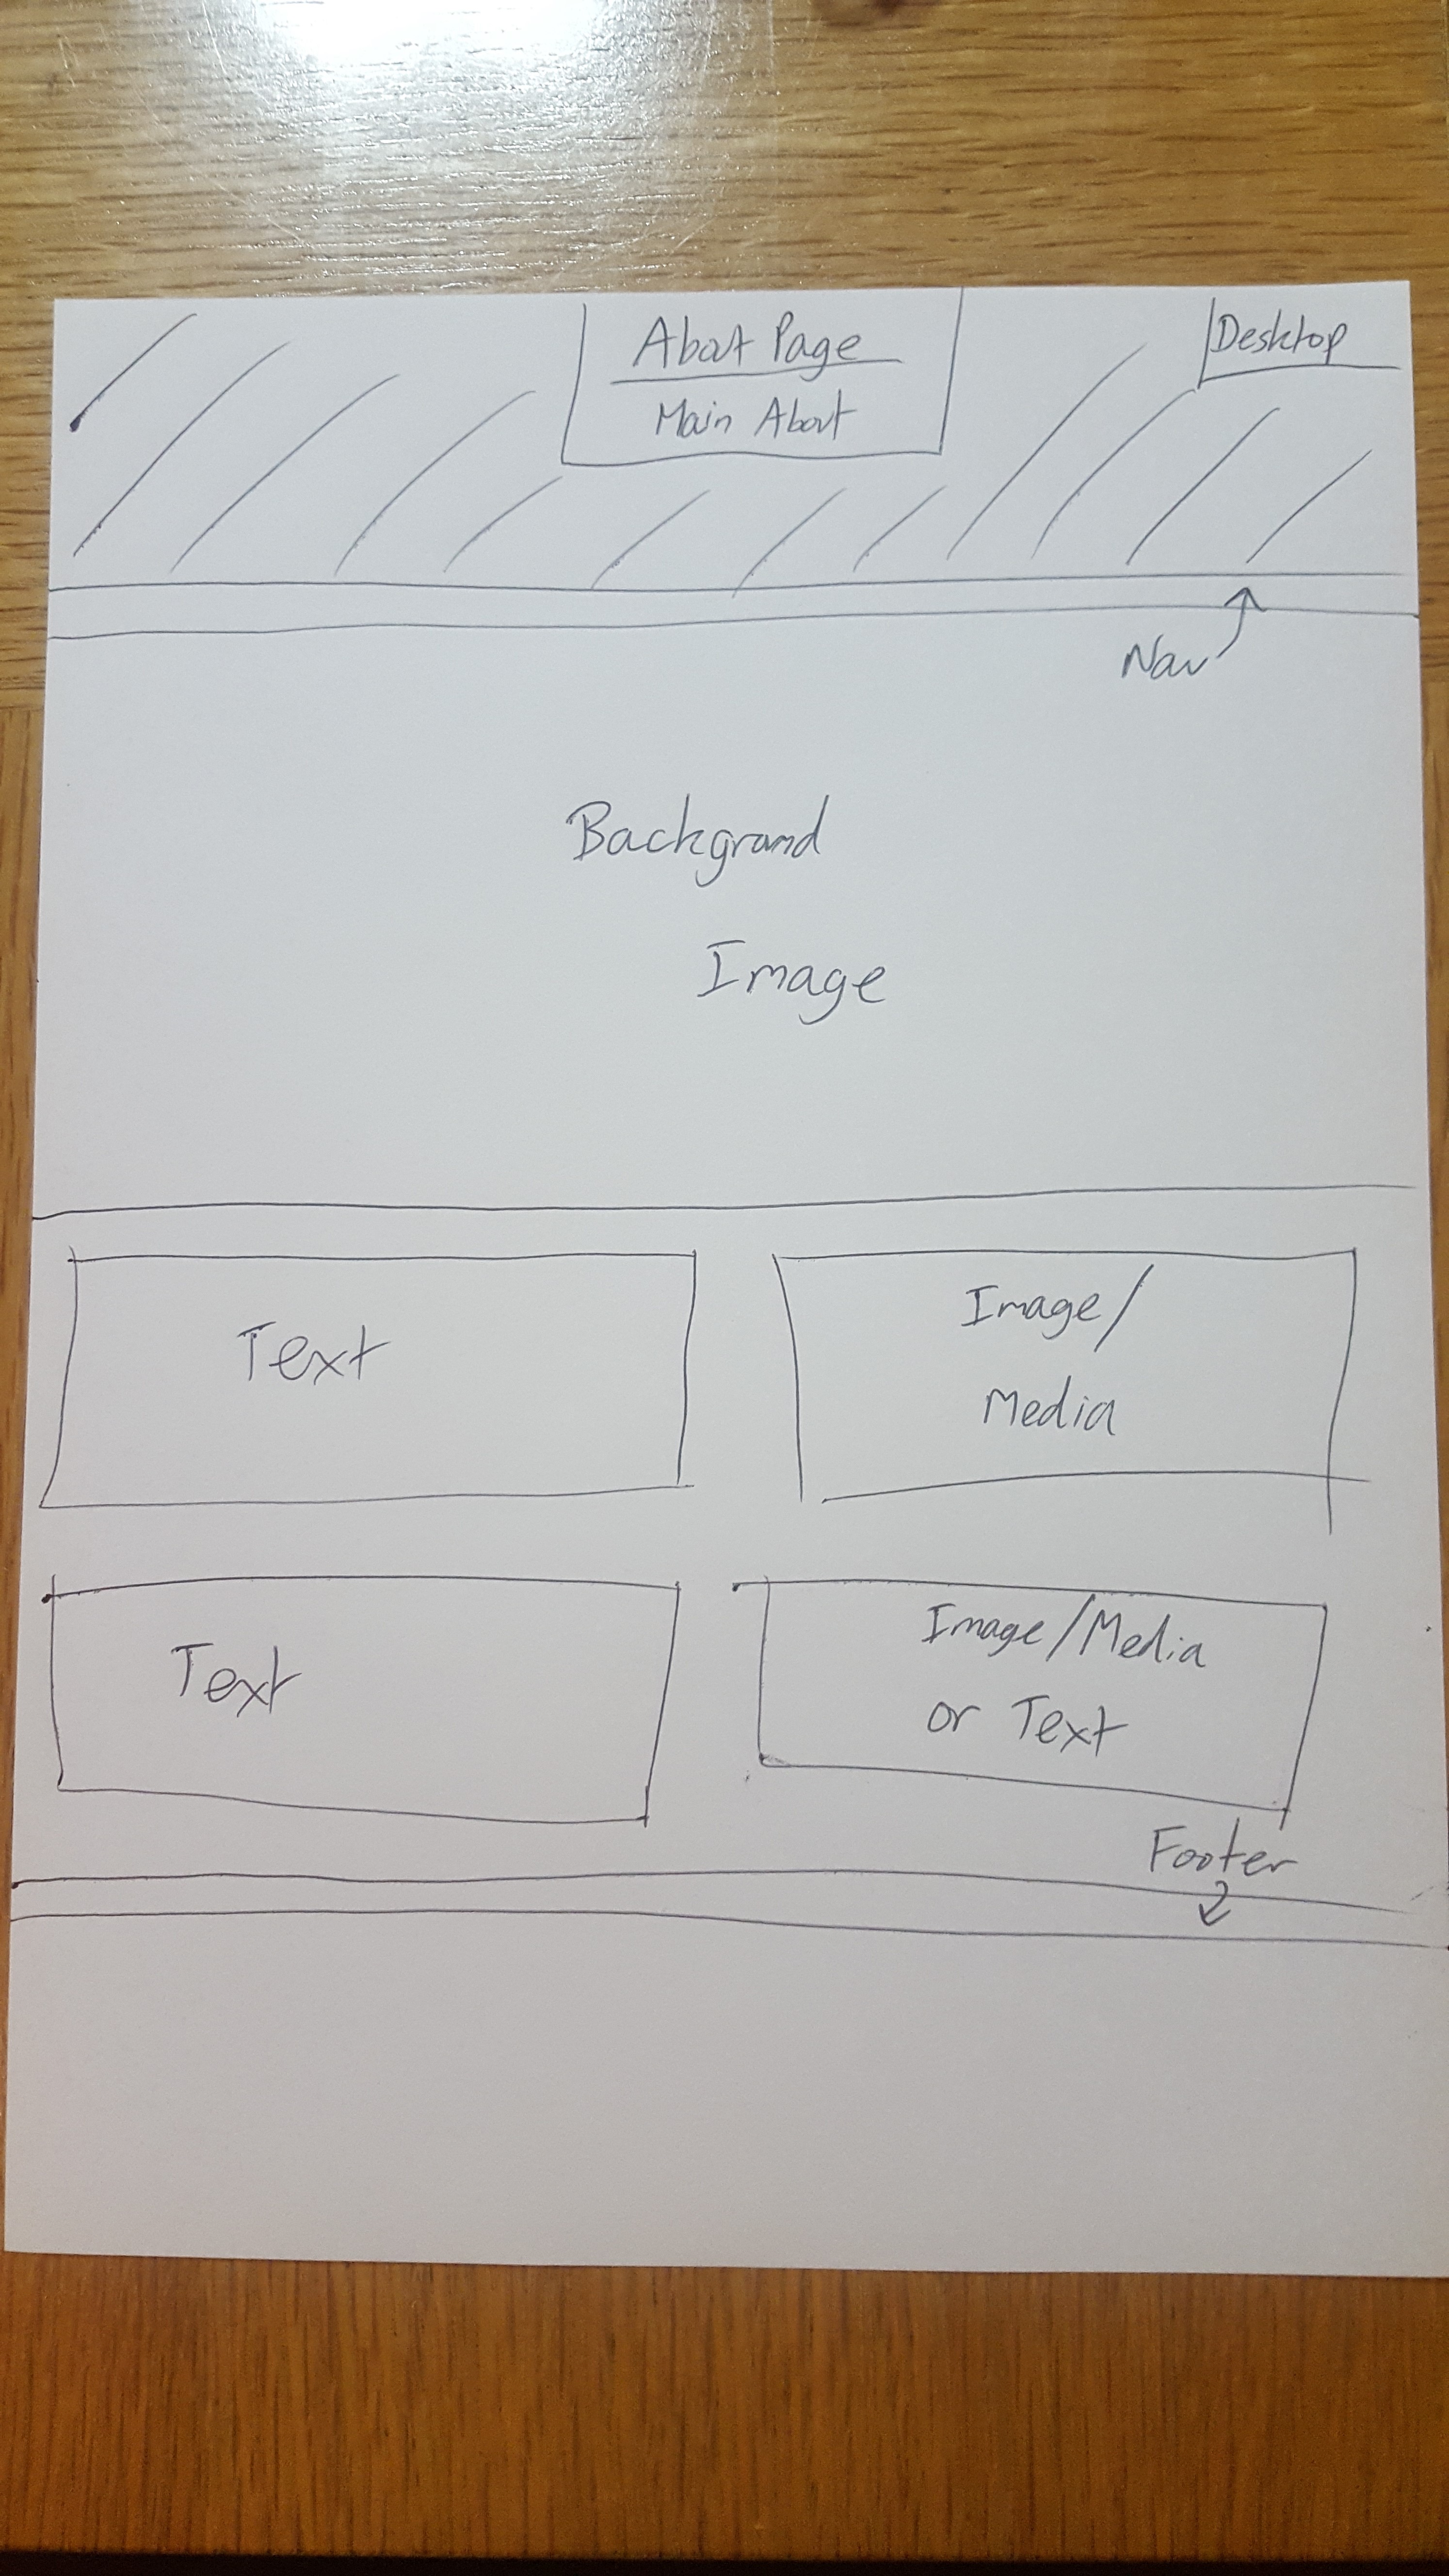 About Page
Main About
Desktop
Nav
Background
Image
Text
Image/
Media
Text
Image/Media
or Text
Footer